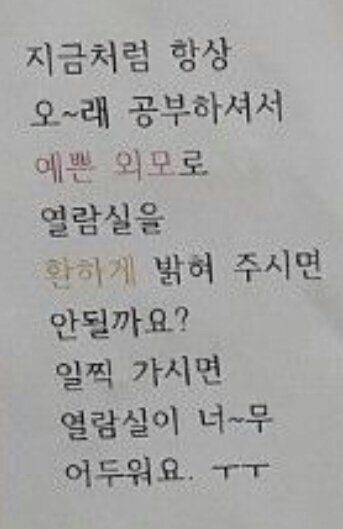 지금처럼 항상
오~래 공부하셔서
예쁜 외모로
열람실을
환하게 밝혀 주시면
안될까요?
일찍 가시면
열람실이 너~무
어두워요. ㅜㅜ